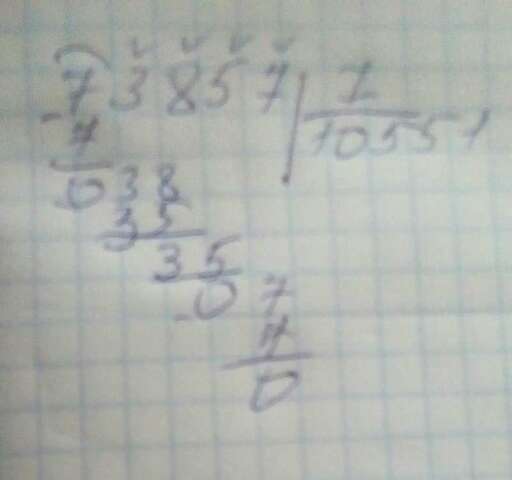 73857 7
7 10551
038
35
35
07
7
0